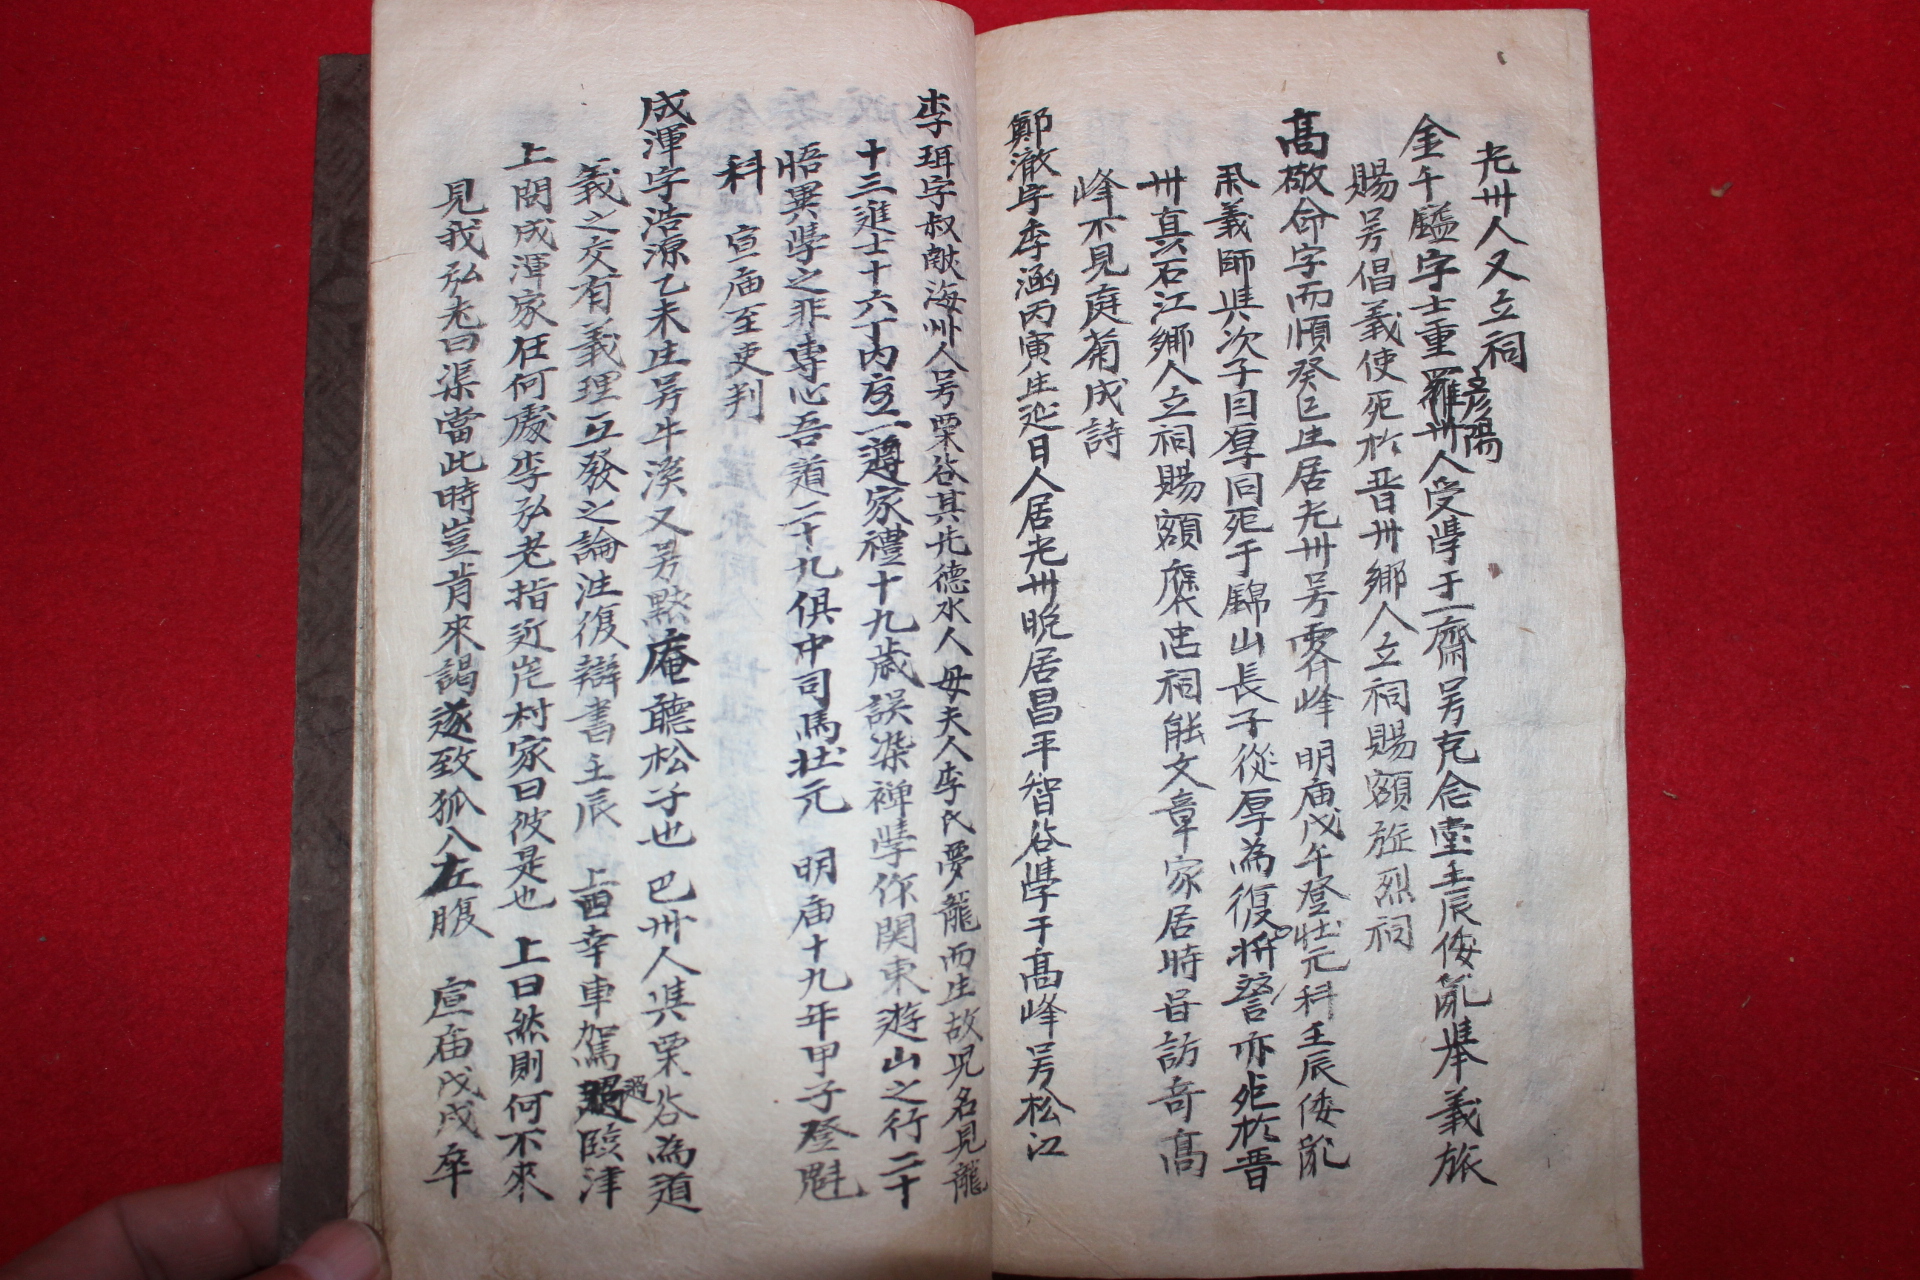 光州人又立祠
彦陽
金千鎰字士重羅州人受學于一齋号克念堂壬辰倭亂擧義旅
賜号倡義使死於晋州鄉人立祠賜額旌烈祠
高敬命字而順癸巳生居光州号霽峰 明庙戊午登壯元科壬辰倭亂
義師與次子因厚同死于錦山長子從厚為復將 亦死於晋
州真石江鄉人立祠賜額褒忠祠能文章家居時昔訪奇高
峰不見庭菊成詩
鄭澈字季涵丙寅生延日人居光州晚居昌平智谷學于高峰号松江
李珥字叔献海州人号栗谷其先德水人母夫人李氏夢龍而生故児名見龍
十三進士十六丁內 一遵家禮十九歲誤染禅學作関東遊山之行二十
悟異學之非専心吾道二十九俱中司馬壯元 明庙十九年甲子登魁
科 宣庙至吏判
成渾字浩源乙未生号牛溪又号黙庵聽松子也 巴州人與栗谷為道
義之交有義理互發之論往復辯書壬辰 上西幸車駕過臨津
上問成渾家在何處李弘老指近岸村家曰彼是也 上曰然則何不來
見我弘老曰渠當此時豈肯來謁遂致狐八左腹 宣庙戊戌卒